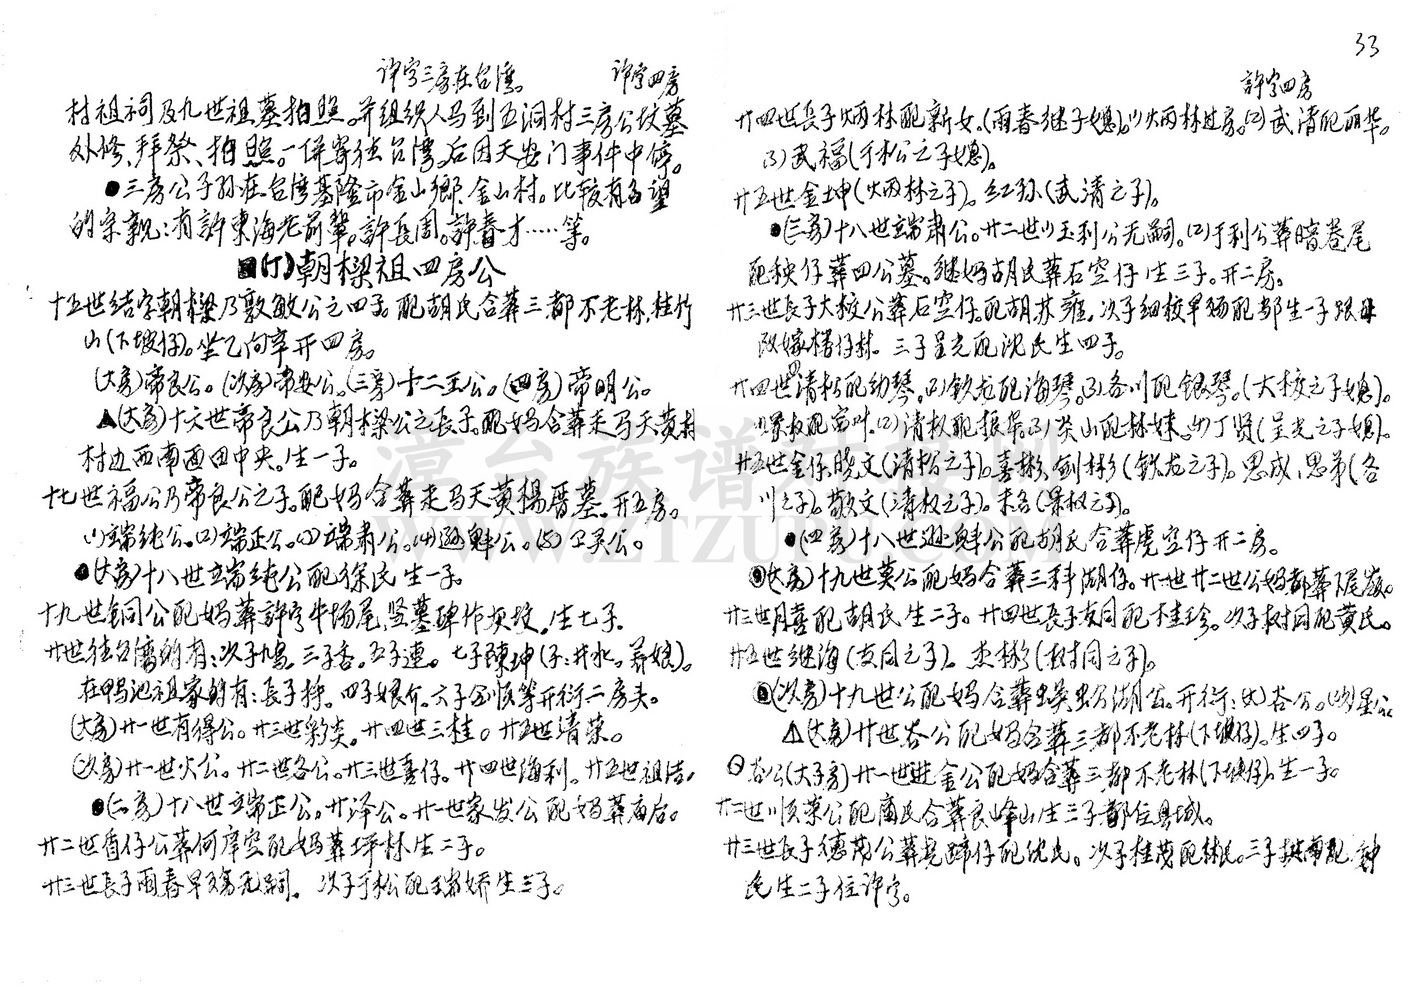 33
许字三房在台湾。 许字四房
村祖祠及九世祖墓拍照。并组织人马到五洞村三房公坟墓
外修、拜祭、拍照。一併寄往台湾。后因天安门事件中停。
●三房公子孙在台湾基隆市金山鄉、金山村。比较有名望
的宗親：有許東海老前輩。許長周。許春才……等。
(丁)朝樑祖四房公
十五世结字朝樑乃敦敏公之四子。配胡氏合葬三都不老林,桂竹
山(下坡仔)。坐乙向辛开四房。
(大房)帝良公。(次房)帝安公。(三房)十二五公。(四房)帝明公。
▲(大房)十六世帝良公乃朝樑公之長子。配妈合葬走马天黄村
村边西南面田中央。生一子。
十七世福公乃帝良公之子。配妈合葬走马天黄楊厝墓。开五房。
(1)端纯公。(2)端正公。(3)端肃公。(4)逊魁公。(5)卫灵公。
●(大房)十八世端纯公配徐氏生一子。
十九世铜公配妈葬許字牛场尾,竖墓碑作顶坟。生七子。
廿世往台湾的有：次子 三子香。五子連。七子陳坤(子:井水。养娘)。
在鸭池祖家的有：長子 四子娘 六子 等开衍二房头。
(大房)廿一世有得公。廿三世 廿四世三桂。廿五世清荣。
(次房)廿一世火公。廿二世各公。廿三世喜仔。廿四世海利。廿五世祖洁。
●(二房)十八世端正公。廿泽公。廿一世家发公配妈葬庙后。
廿二世香仔公葬何岸空配妈葬坪林生二子。
廿三世長子雨春早殇无嗣。 次子于松配瑞娇生三子。
許字四房
廿四世長子炳林配新女。(雨春继子媳)。(1)炳林过房。(2)武清配丽华。
(3)武福(于松公之子媳)。
廿五世金坤(炳林之子)。红孙(武清之子)。
●(三房)十八世端肃公。廿二世(1)玉利公无嗣。(2)于利公葬暗巷尾
配秧仔葬四公墓。继妈胡氏葬石空仔 生三子。开二房。
廿三世長子大校公葬石空仔。配胡苏 次子细校早殇配郭生一子跟母
改嫁 仔林。三子呈光配沈氏生四子。
廿四世(1)清松配幼琴。(2)钦龙配海琴。(3)各川配银琴。(大校之子媳)。
(1) 权配富叶。(2)清权配振 (3)崇山配林妹。(4)丁贤(呈光之子媳)。
廿五世金仔、晓文(清松之子)。喜彬、剑彬(钦龙之子)。思成、思弟(各
川之子)。敬文(清权之子)。 ( 权之子)。
●(四房)十八世逊魁公配胡氏合葬虎空仔开二房。
(大房)十九世英公配妈合葬三科湖仔。廿一世廿二世公妈都葬下尾嶺。
廿三世月喜配胡氏生二子。廿四世長子友同配桂珍。次子树同配黄氏。
廿五世继海(友同之子)。杰彬(树同之子)。
(次房)十九世公配妈合葬 公湖公。开衍：(大)谷公。 星公。
▲(大房)廿世谷公配妈合葬三都不老林(下坡仔)。生四子。
谷公(大子房)廿一世进金公配妈合葬三都不老林(下坡仔)。生一子。
廿二世顺荣公配 氏合葬良峰山生三子都住县城。
廿三世長子德茂公葬 蹄仔配沈氏。 次子桂茂配林氏。三子 配钟
氏生二子住许字。